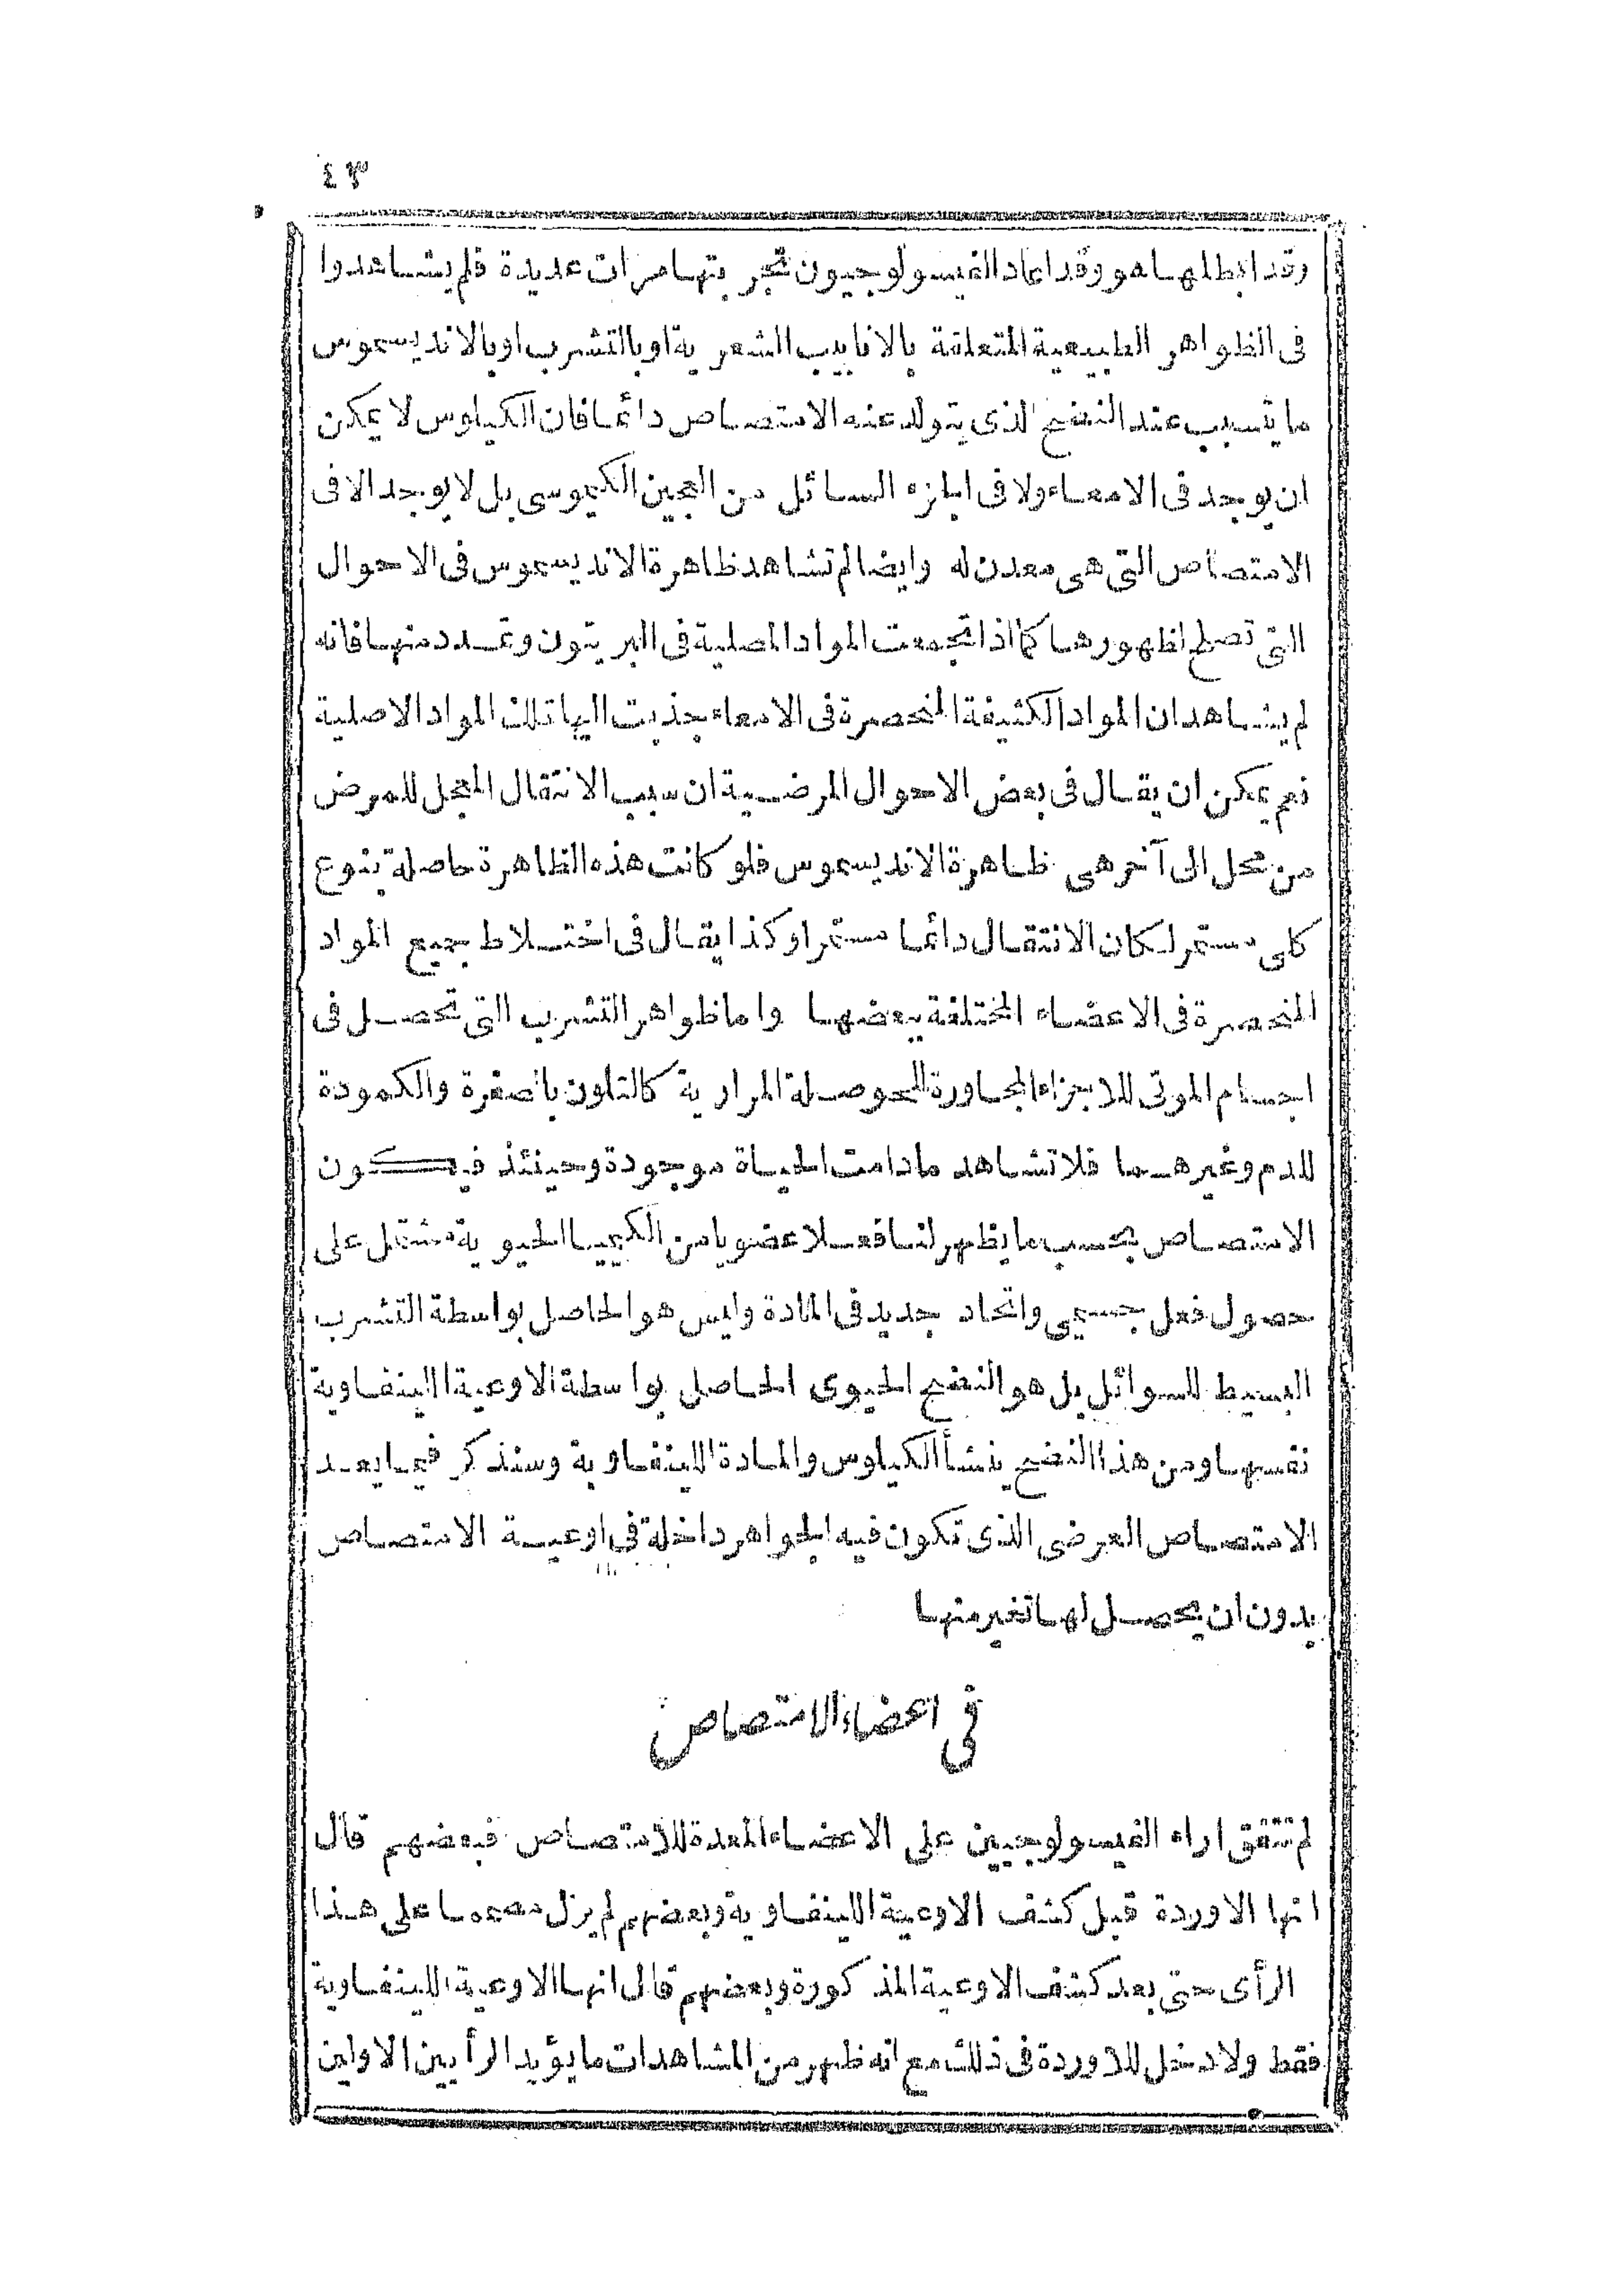 ٤٣
وقد ابطلها هو وقد اعاد الفيسولوجيون تجربتها مرات عديدة فلم يشاهدوا
فى الظواهر الطبيعية المتعلقة بالانابيب الشعرية او بالتشرب او بالانديسموس
ما يتسبب عنه النضج الذى يتولد عنه الامتصاص دائما فان الكيلوس لا يمكن
ان يوجد فى الامعاء ولا فى الجزء السائل من العجين الكيموسى بل لا يوجد الا فى
الامتصاص التى هى معدن له وايضا لم تشاهد ظاهرة الانديسموس فى الاحوال
التى تصلح لظهورها كما اذا تجمعت المواد المصلية فى البريتون وتمدد منها فانه
لم يشاهد ان المواد الكثيفة المنحصرة فى الامعاء جذبت اليها تلك المواد الاصلية
نعم يمكن ان يقال فى بعض الاحوال المرضية ان سبب الانتقال المعجل للمرض
من محل الى آخر هى ظاهرة الانديسموس فلو كانت هذه الظاهرة حاصلة بنوع
كلى مستمر لكان الانتقال دائما مستمرا وكذا يقال فى اختلاط جميع المواد
المنحصرة فى الاعضاء المختلفة ببعضها واما ظواهر التشرب التى تحصل فى
اجسام الموتى للاجزاء المجاورة للحوصلة المرارية كالتلون بالصفرة والكمودة
للدم وغيرهما فلا تشاهد ما دامت الحياة موجودة وحينئذ فيكون
الامتصاص بحسب ما يظهر لنا فعلا عضويا من الكيميا الحيوية مشتمل على
حصول فعل جسيمى واتحاد جديد فى المادة وليس هو الحاصل بواسطة التشرب
البسيط للسوائل بل هو النضج الحيوى الحاصل بواسطة الاوعية اللينفاوية
نفسها ومن هذا النضج ينشأ الكيلوس والمادة اللينفاوية وسنذكر فيما بعد
الامتصاص العرضى الذى تكون فيه الجواهر داخلة فى اوعية الامتصاص
بدون ان يحصل لها تغير منها
فى اعضاء الامتصاص
لم تتفق اراء الفيسولوجيين على الاعضاء المعدة للامتصاص فبعضهم قال
انها الاوردة قبل كشف الاوعية اللينفاوية وبعضهم لم يزل مصمما على هذا
الرأى حتى بعد كشف الاوعية المذكورة وبعضهم قال انها الاوعية اللينفاوية
فقط ولا دخل للاوردة فى ذلك مع انه ظهر من المشاهدات ما يؤيد الرأيين الاولين